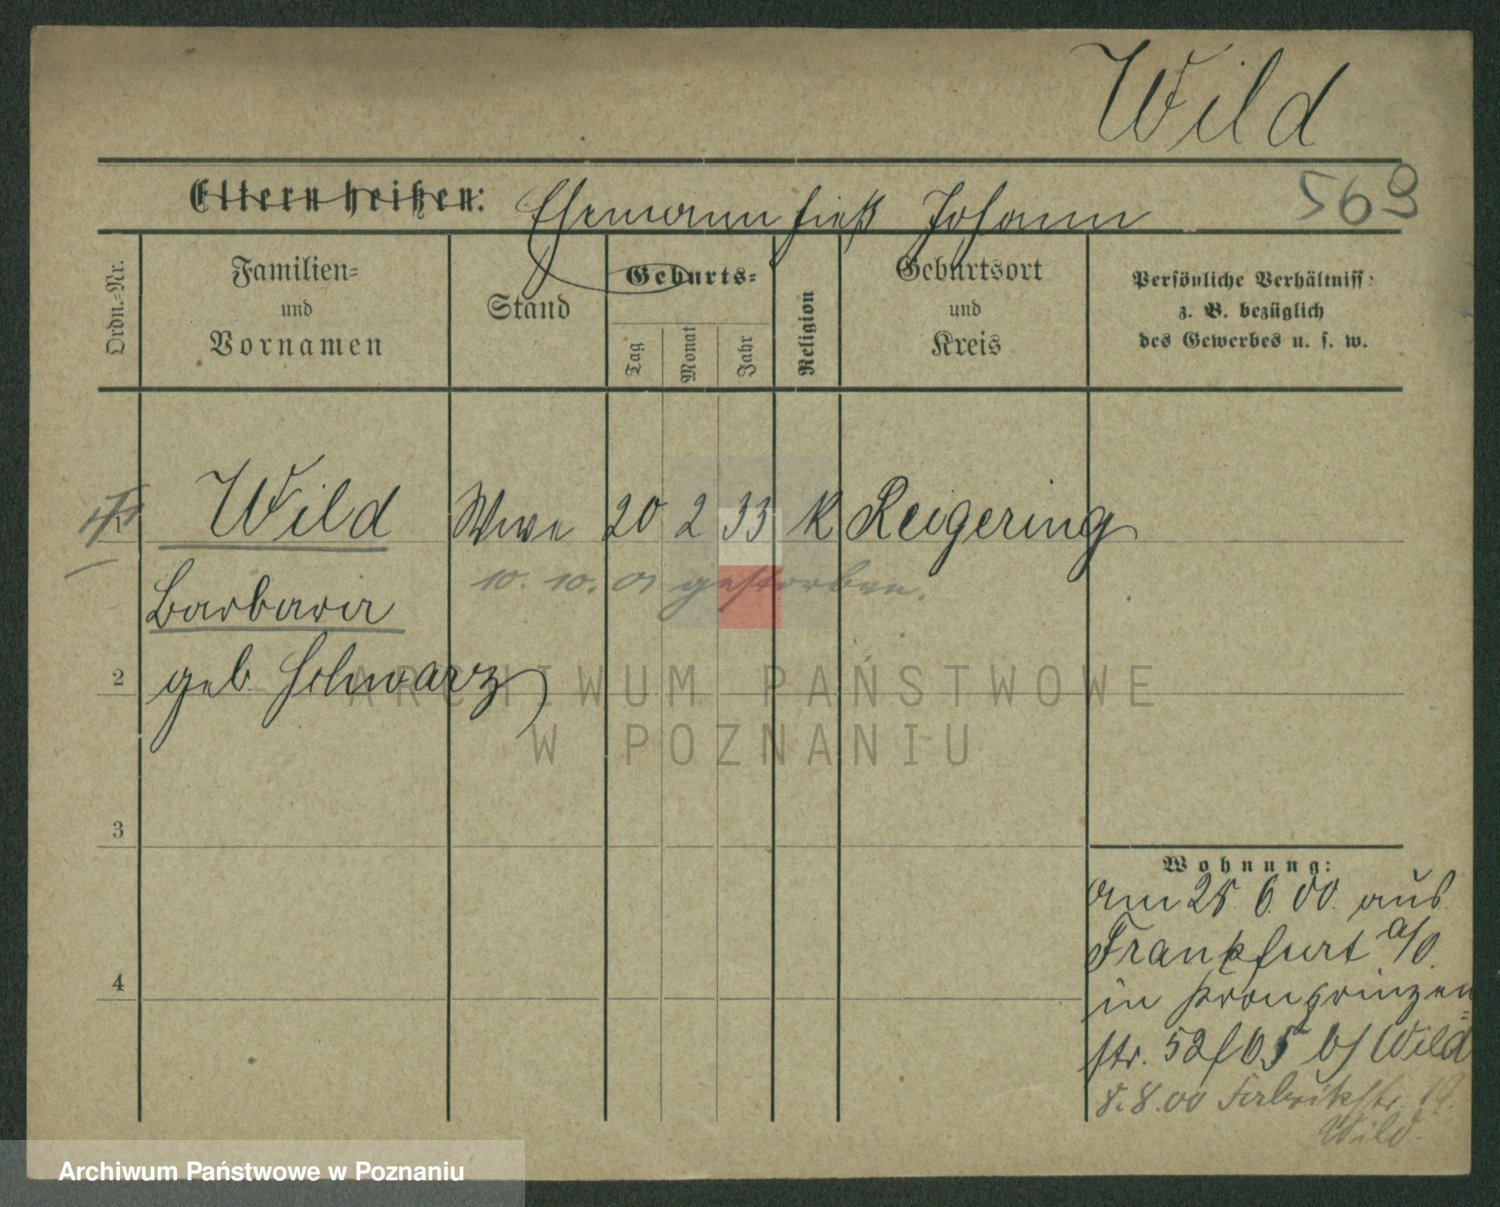 Wild
Eltern heißen: Ehemann hieß Johann 569
Ordn.=Nr.
Familien=
und
Vornamen
Stand
Geburts=
Tag
Monat
Jahr
Religion
Geburtsort
und
Kreis
Persönliche Verhältniss
z. B. bezüglich
des Gewerbes u. s. w.
Wild Wwe 20 2 33 K Reigering
10. 10. 01 gestorben.
Barbara
2 geb. Schwarz
ARCHIWUM PAŃSTWOWE
W POZNANIU
3
Wohnung:
am 25. 6. 00. aus
Frankfurt a/O.
4
in Kronprinzen=
str. 52 b/ Wild
8.8.00 Fabrikstr. 19.
Wild.
Archiwum Państwowe w Poznaniu